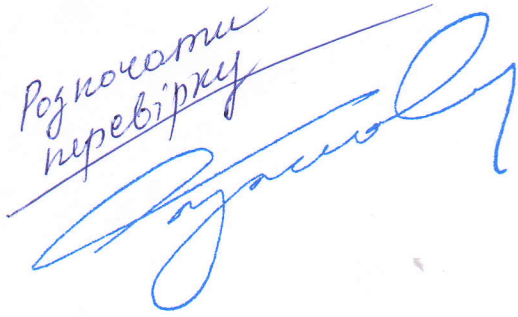 Розпочати
перевірку